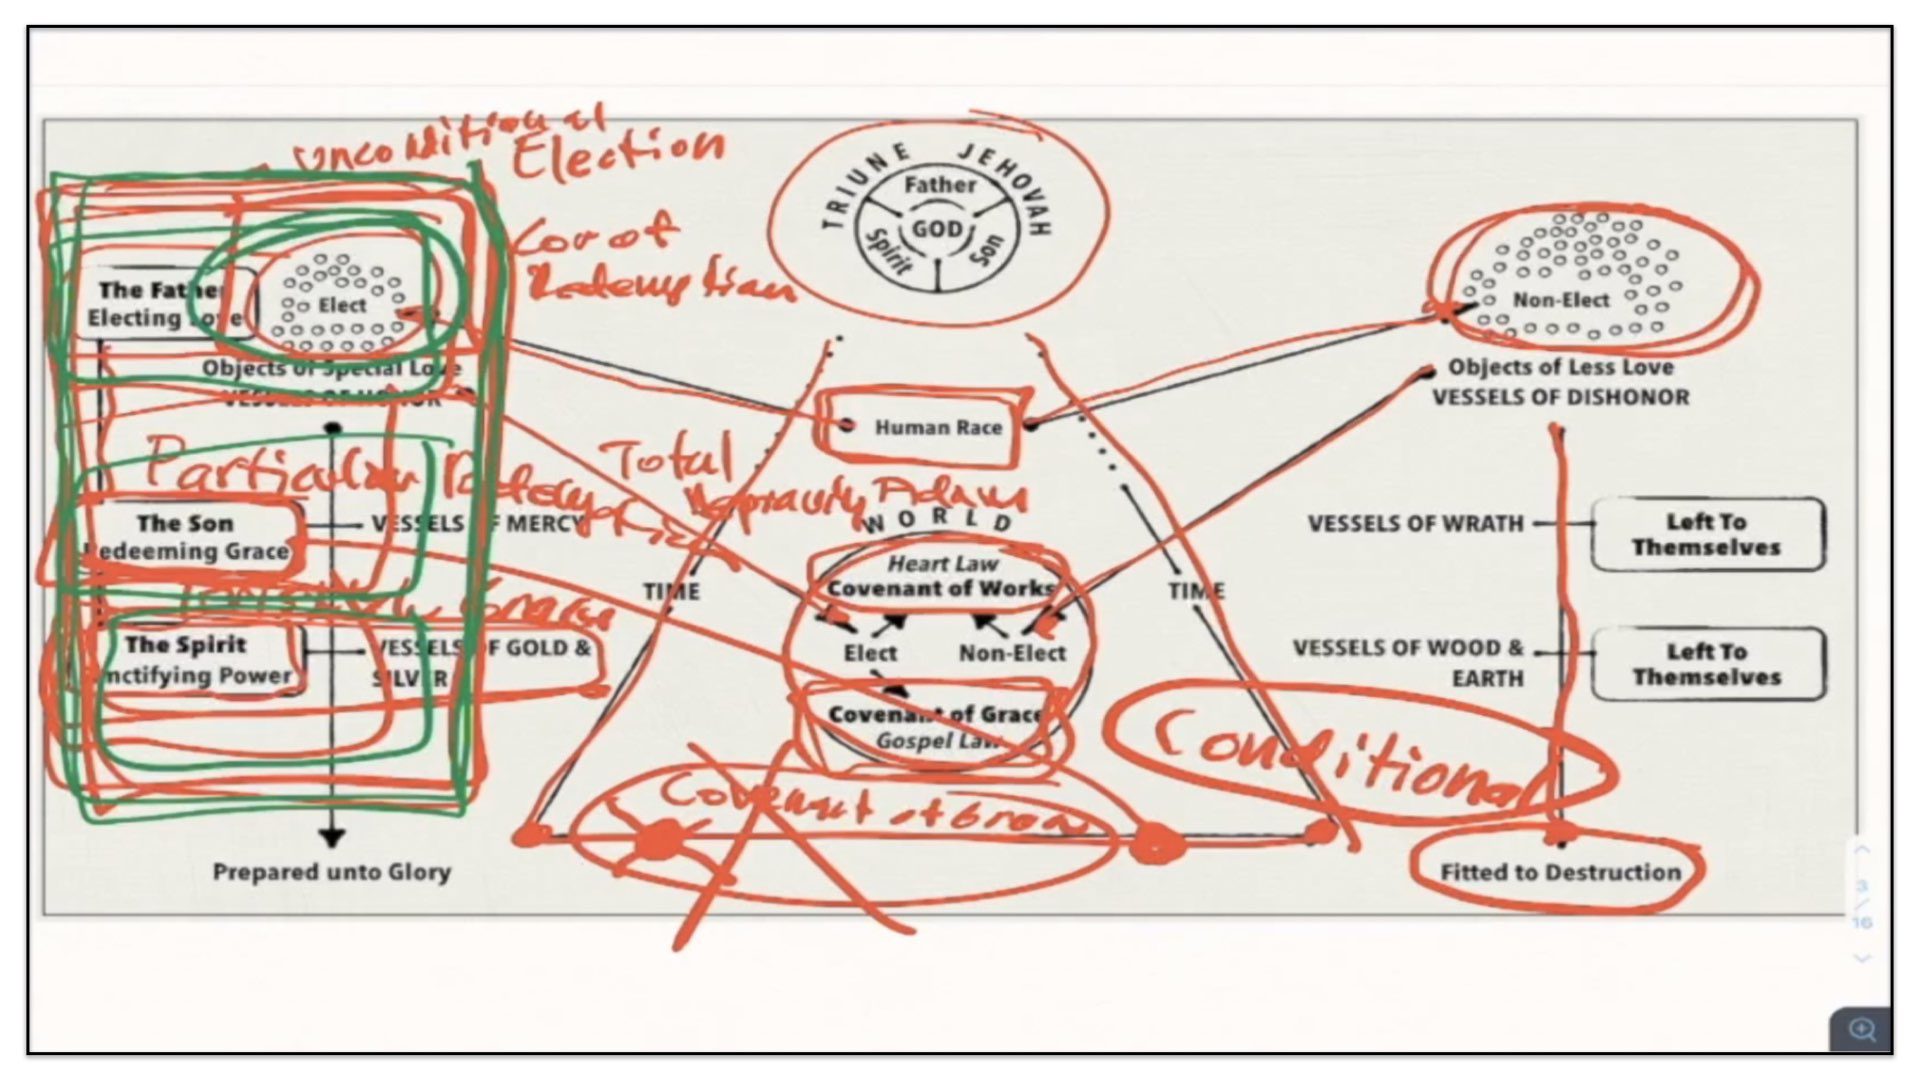 unconditional
Election
TRIUNE JEHOVAH
Father
GOD
Spirit
Son
Cov of
Redemption
The Father
Electing Love
Elect
Non-Elect
Objects of Special Love
VESSELS OF HONOR
Objects of Less Love
VESSELS OF DISHONOR
Human Race
Particular Redemption
Total
Depravity Adam
WORLD
The Son
Redeeming Grace
VESSELS OF MERCY
Heart Law
Covenant of Works
VESSELS OF WRATH
Left To
Themselves
TIME
TIME
Grace
The Spirit
Sanctifying Power
VESSELS OF GOLD &
SILVER
Elect
Non-Elect
VESSELS OF WOOD &
EARTH
Left To
Themselves
Covenant of Grace
Gospel Law
Conditional
Covenant of Grace
Prepared unto Glory
Fitted to Destruction
3
/
16